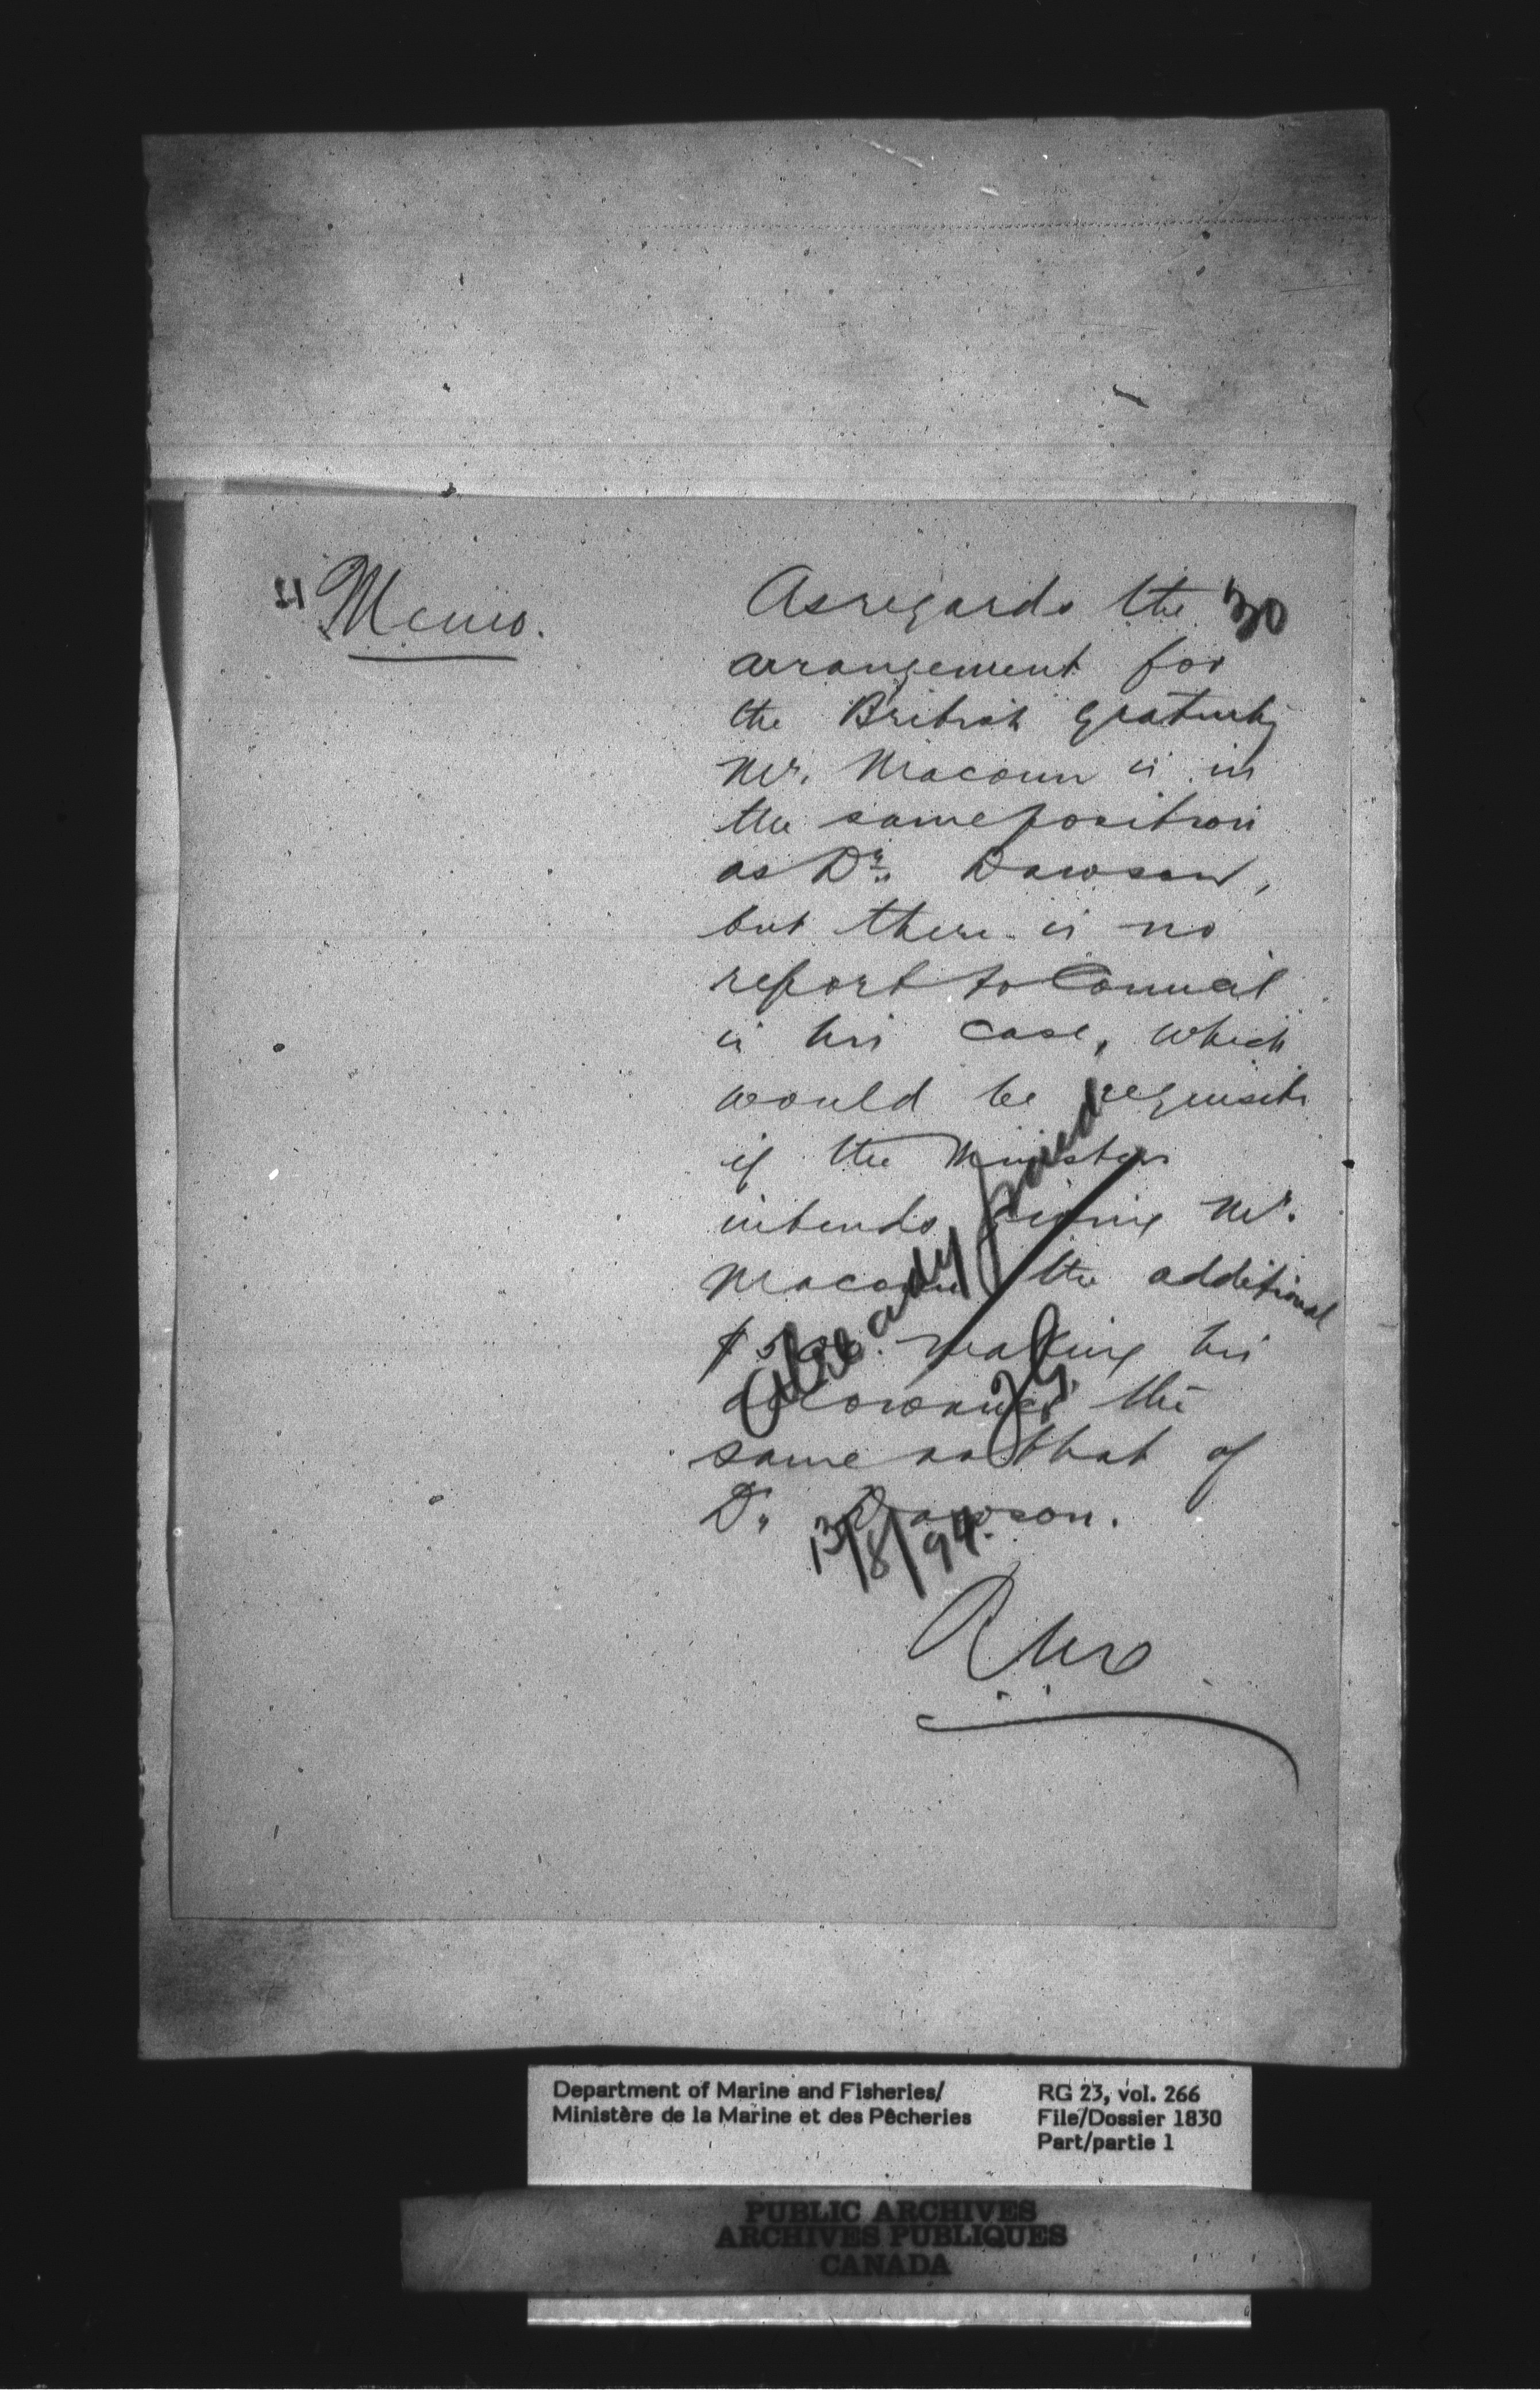 Memo.
As regards the 30
arrangement for
the British gratuity
Mr. Macoun is in
the same position
as Dr. Dawson,
but there is no
report to Council
in his case, which
would be requisite
if the Minister
intends giving Mr.
Macoun the additional
making his
allowances the
same as that of
Dr. Dawson.
already paid
13/8/94.
Department of Marine and Fisheries/
Ministère de la Marine et des Pêcheries
RG 23, vol. 266
File/Dossier 1830
Part/partie 1
PUBLIC ARCHIVES
ARCHIVES PUBLIQUES
CANADA